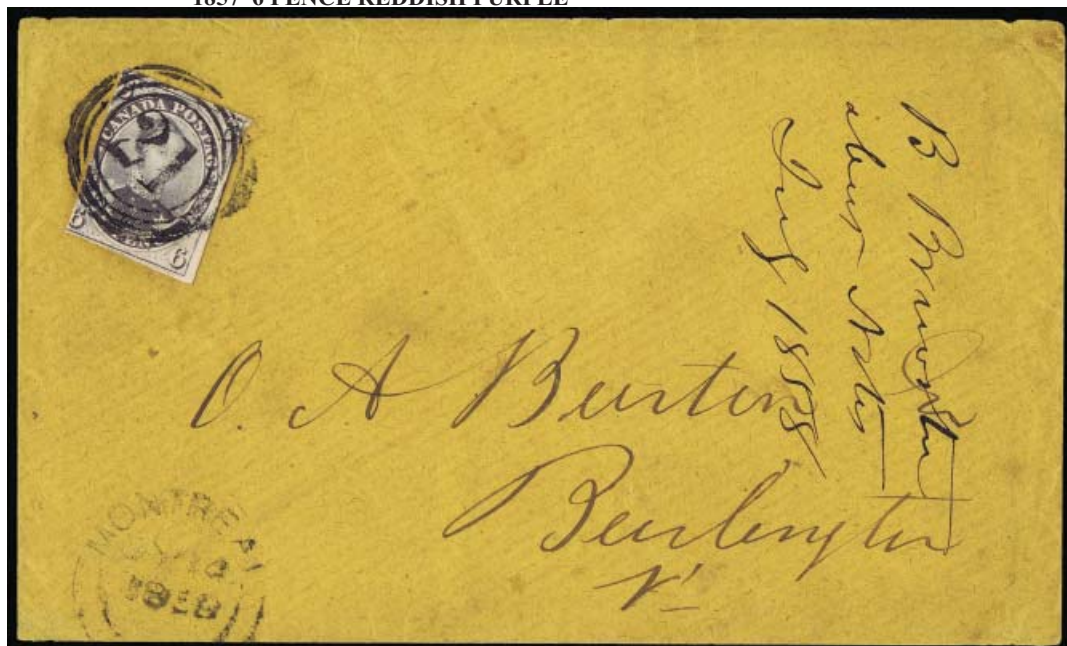 1857 6 PENCE REDDISH PURPLE
CANADA POSTAG
21
6 6
B
about Notes
July 1858
O. A Burton
Burlington
Vt
MONTREAL
1858